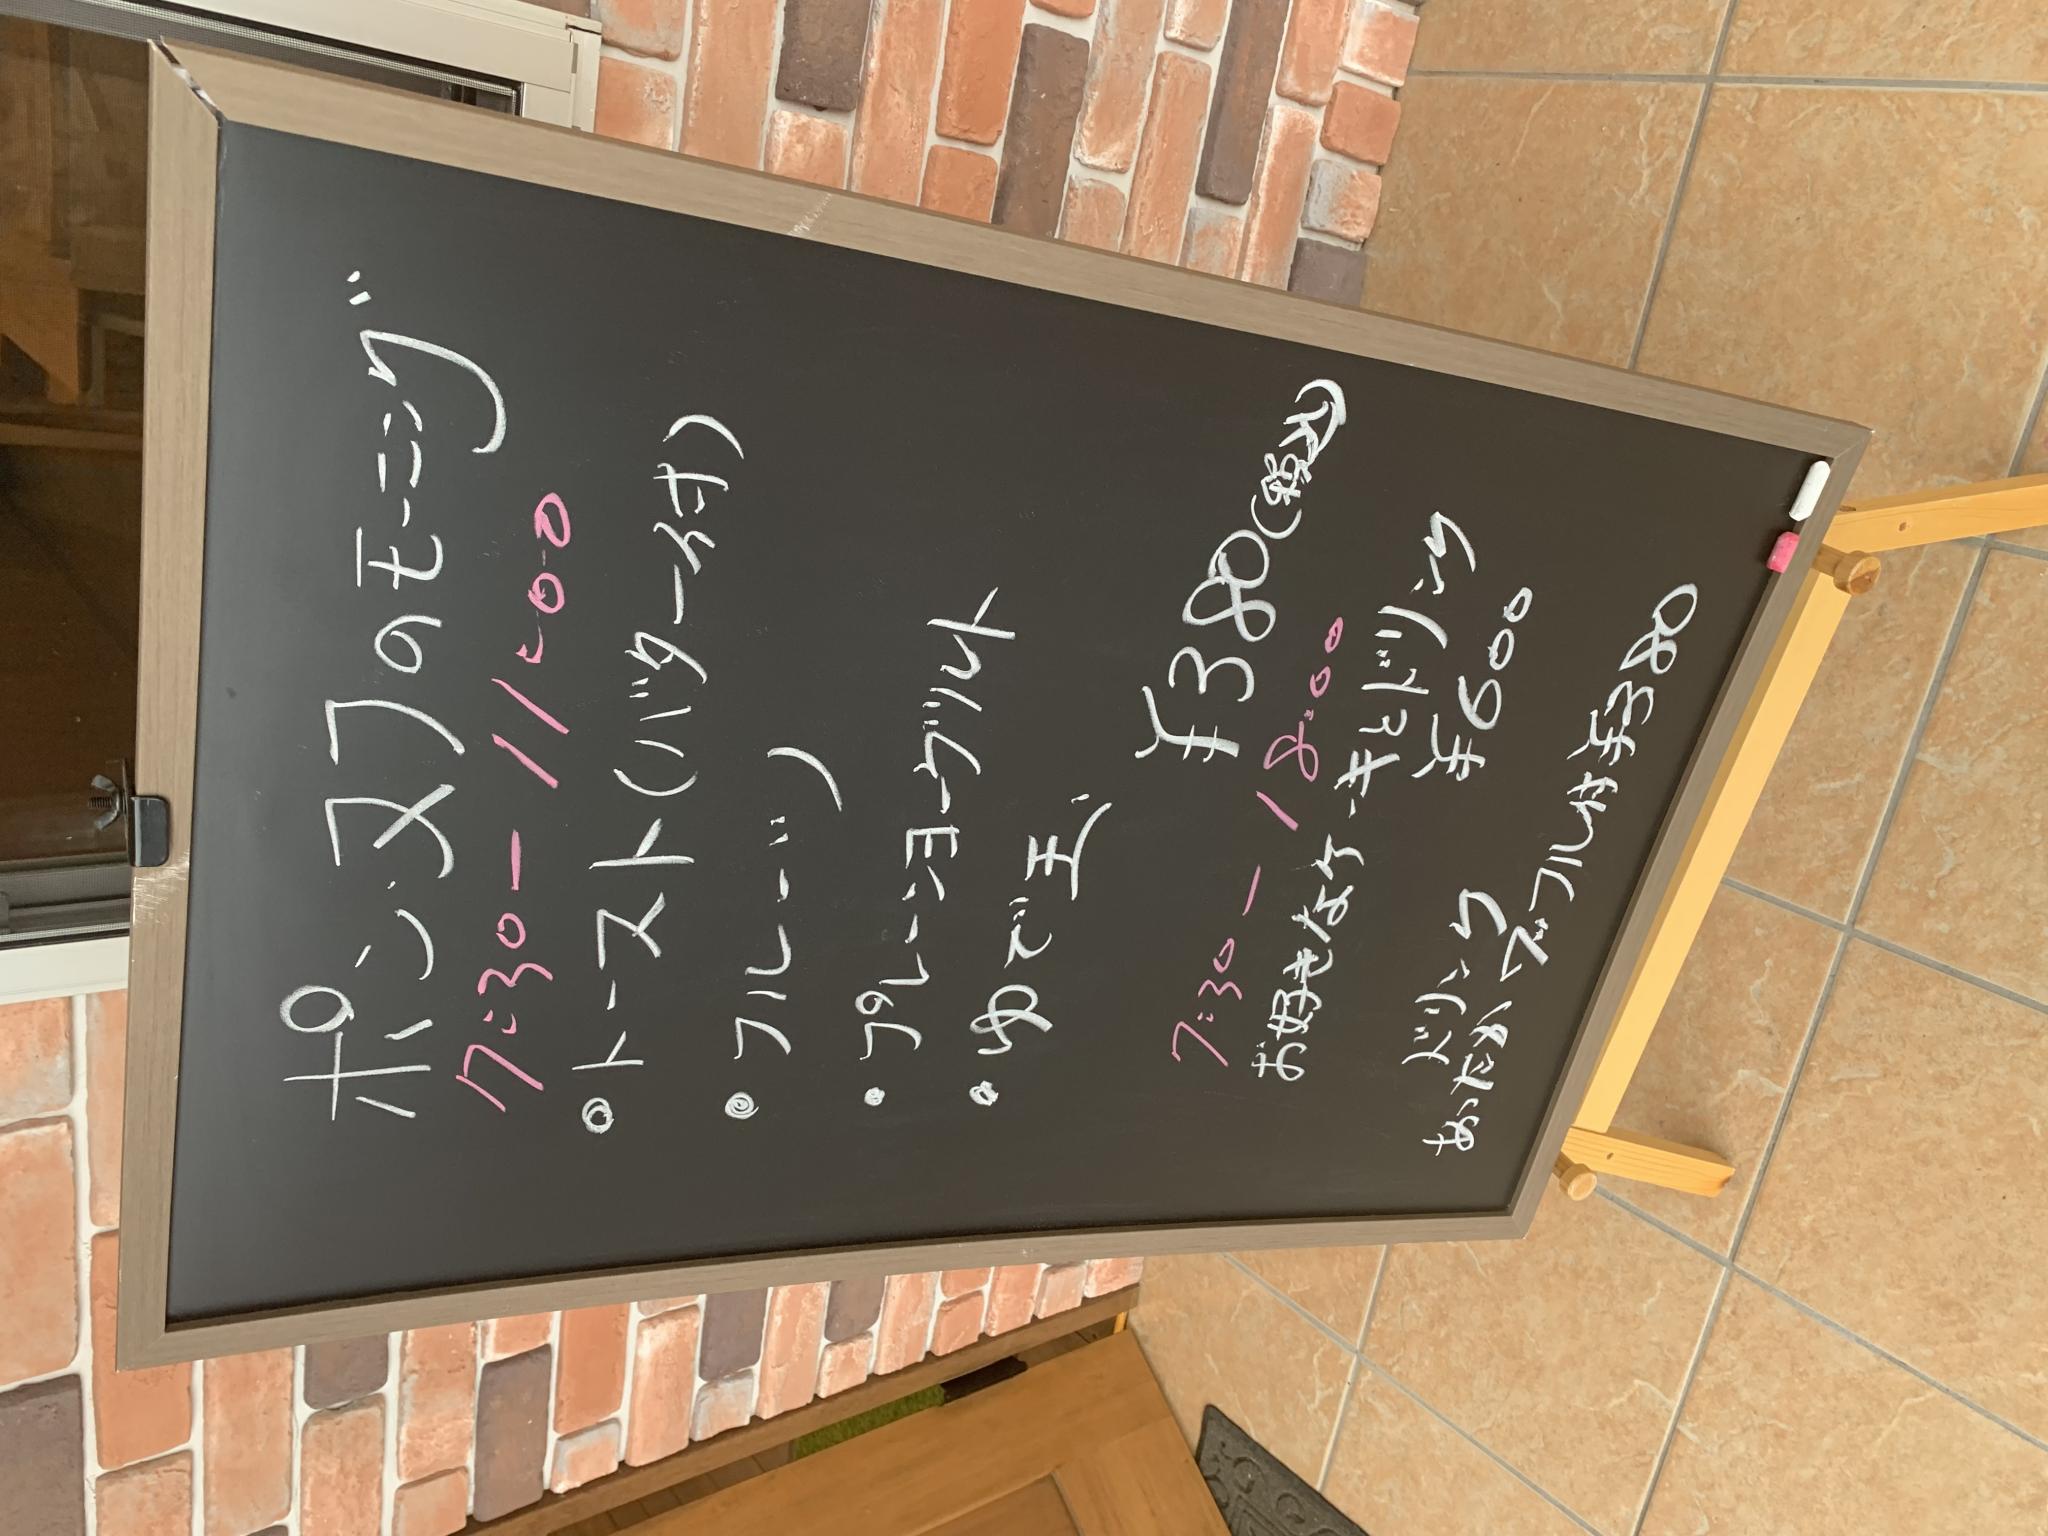 ポンヌフのモーニング
7:30ー11:00
トースト(バター付)
フルーツ
プレーンヨーグルト
ゆで玉
¥380(税込)
7:30ー18:00
お好きなケーキとドリンク
¥600
ドリンク
あったかワッフル付¥380